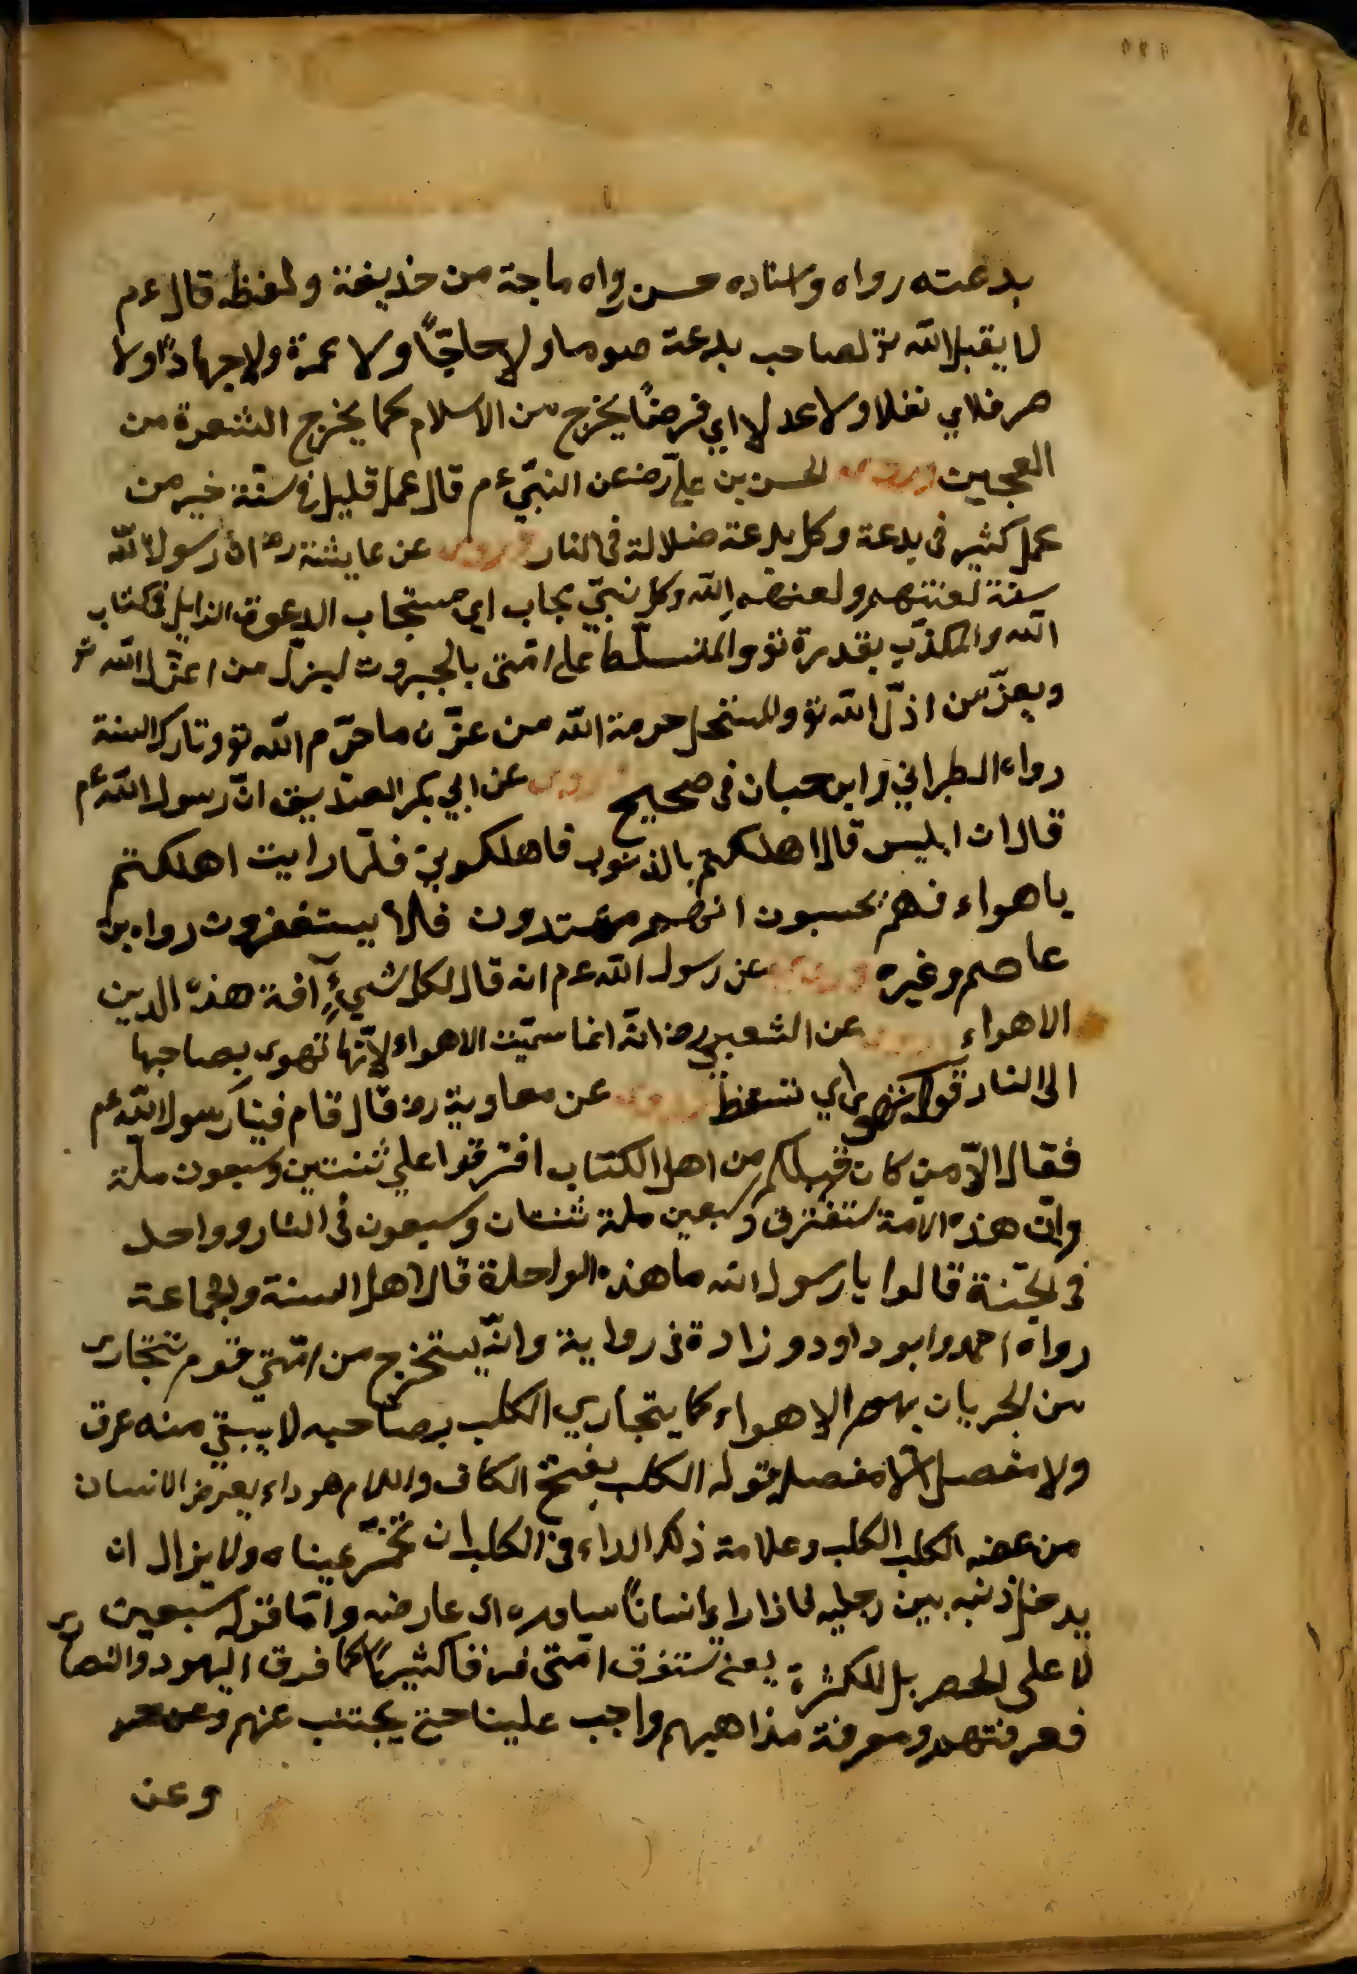 بدعته رواه واسناده حسن رواه ماجة من حذيفة ولفظه قال عم
لا يقبل الله تع لصاحب بدعة صوما ولا حاجًّا ولا عمرة ولا جهادًا ولا
صرفا اي نفلا ولا عدلا اي فرضًا يخرج من الاسلام كما يخرج الشعرة من
العجين وروى الحسن بن عليّ رض عن النبيّ عم قال عمل قليل في سنّة خير من
عمل كثير في بدعة وكل بدعة ضلالة في النار وروى عن عايشة رض انّ رسول الله
ستة لعنتهم ولعنهم الله وكل نبيّ يجاب اي مستجاب الدعوة الزايل في كتاب
الله والمكذّب بقدرة تع والمتسلّط على امّتي بالجبروت ليزلّ من اعزّ الله تع
ويعزّ من اذلّ الله تع والمستحل حرمة الله من عزّن ما حرّم الله تع وتارك السنة
رواه الطبراني وابن حبان في صحيح وروى عن ابي بكر الصديق انّ رسول الله عم
قال ان ابليس قال اهلكهم بالذنوب فاهلكوني فلمّا رايت اهلكتهم
ياهواء فهم يحسبون انهم مهتدون فلا يستغفرون رواه بن
عاصم وغيره وروى عن رسول الله عم انه قال لكل شيءٍ آفة هذه الدين
الاهواء وروى عن الشعبي رض انّه انما سمّيت الاهواء لانّها تهوى بصاحبها
الى النار قوله تهوى اي تسقط وروى عن معاوية رض قال قام فينا رسول الله عم
فقال الا من كان قبلكم من اهل الكتاب افترقوا على ثنتين وسبعون ملّة
وان هذه الامة ستفترق وسبعين ملة ثنتان وسبعون في النار وواحد
في الجنّة قالوا يا رسول الله ما هذه الواحدة قال اهل السنة والجماعة
رواه احمد وابو داود وزادة في رواية وانّه يستخرج من امّتي قوم تتجارى
من الجريان بهم الاهواء كما يتجاري الكلب بصاحبه لا يبقي منه عرق
ولا مفصل الا مفصل قوله الكلب بفتح الكاف واللام هو داء يعرض الانسان
من عضه الكلب الكلب وعلامة ذلك الداء في الكلب ان تحمّر عيناه ولا يزال ان
يدخل ذنبه بين رجليه فاذا راء انسانًا ساوره اى عارضه وامّا قوله سبعين
لا على الحصر بل للكثرة يعنى ستفرق امّتي فرقا كثيرًا كما فرق اليهود والنصارى
فعرفتهم ومعرفة مذاهبهم واجب علينا حتى يجتنب عنهم وعن
وعن